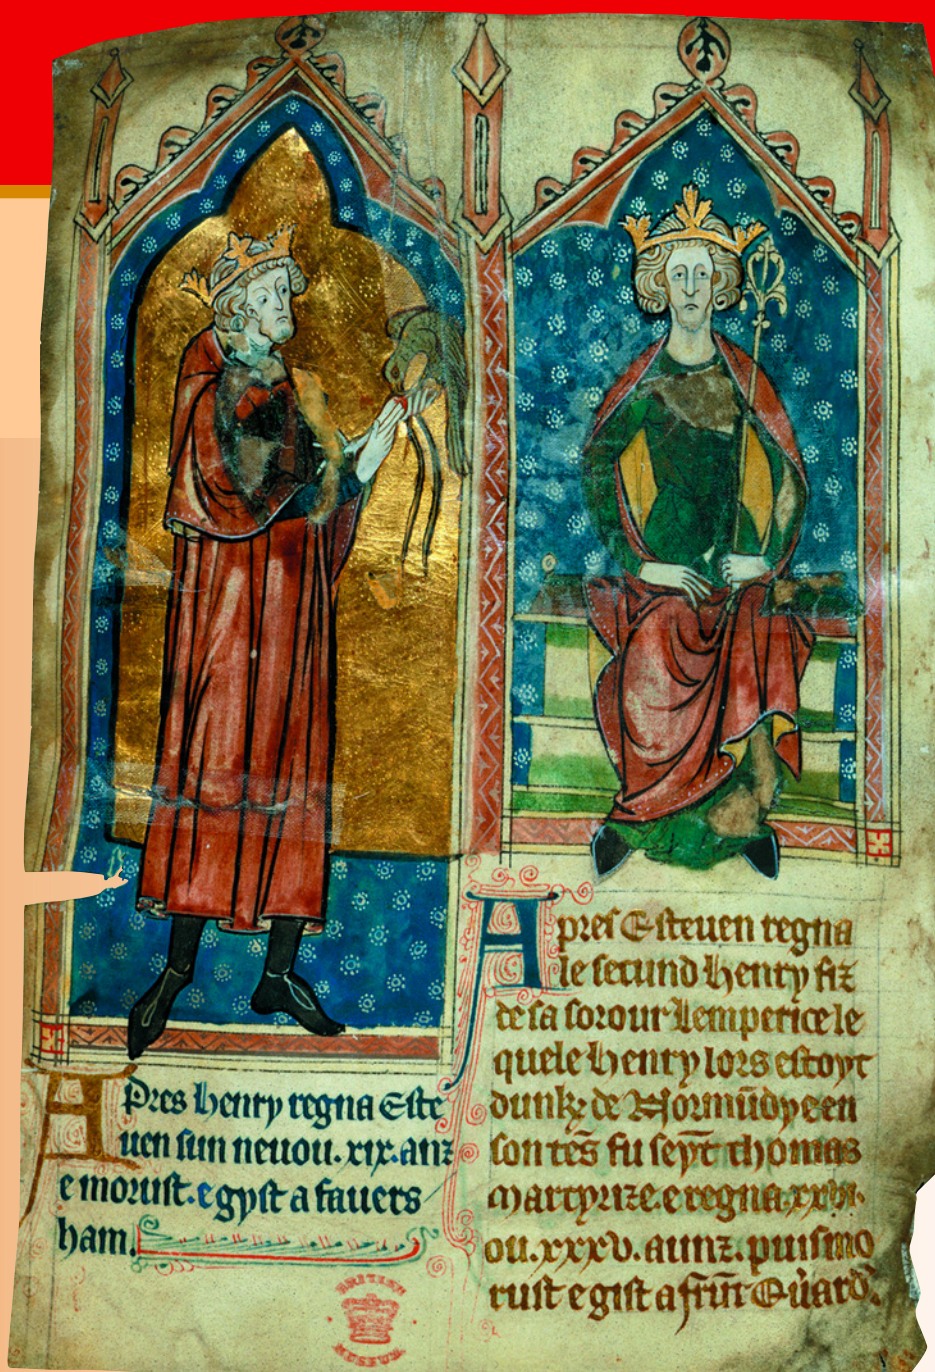 Apres henry regna Este
uen sun neuou . xix . anz
e morust . e gyst a fauers
ham.
Apres Esteuen regna
le secund henry fiz
de sa sorour lemperice le
quele henry lors estoyt
dunk de Normūdye en
son tēs fu seyt thomas
martyrize . e regna
ou . xxxv . aunz . puis mo
rust e gist a
BRITISH
MUSEUM